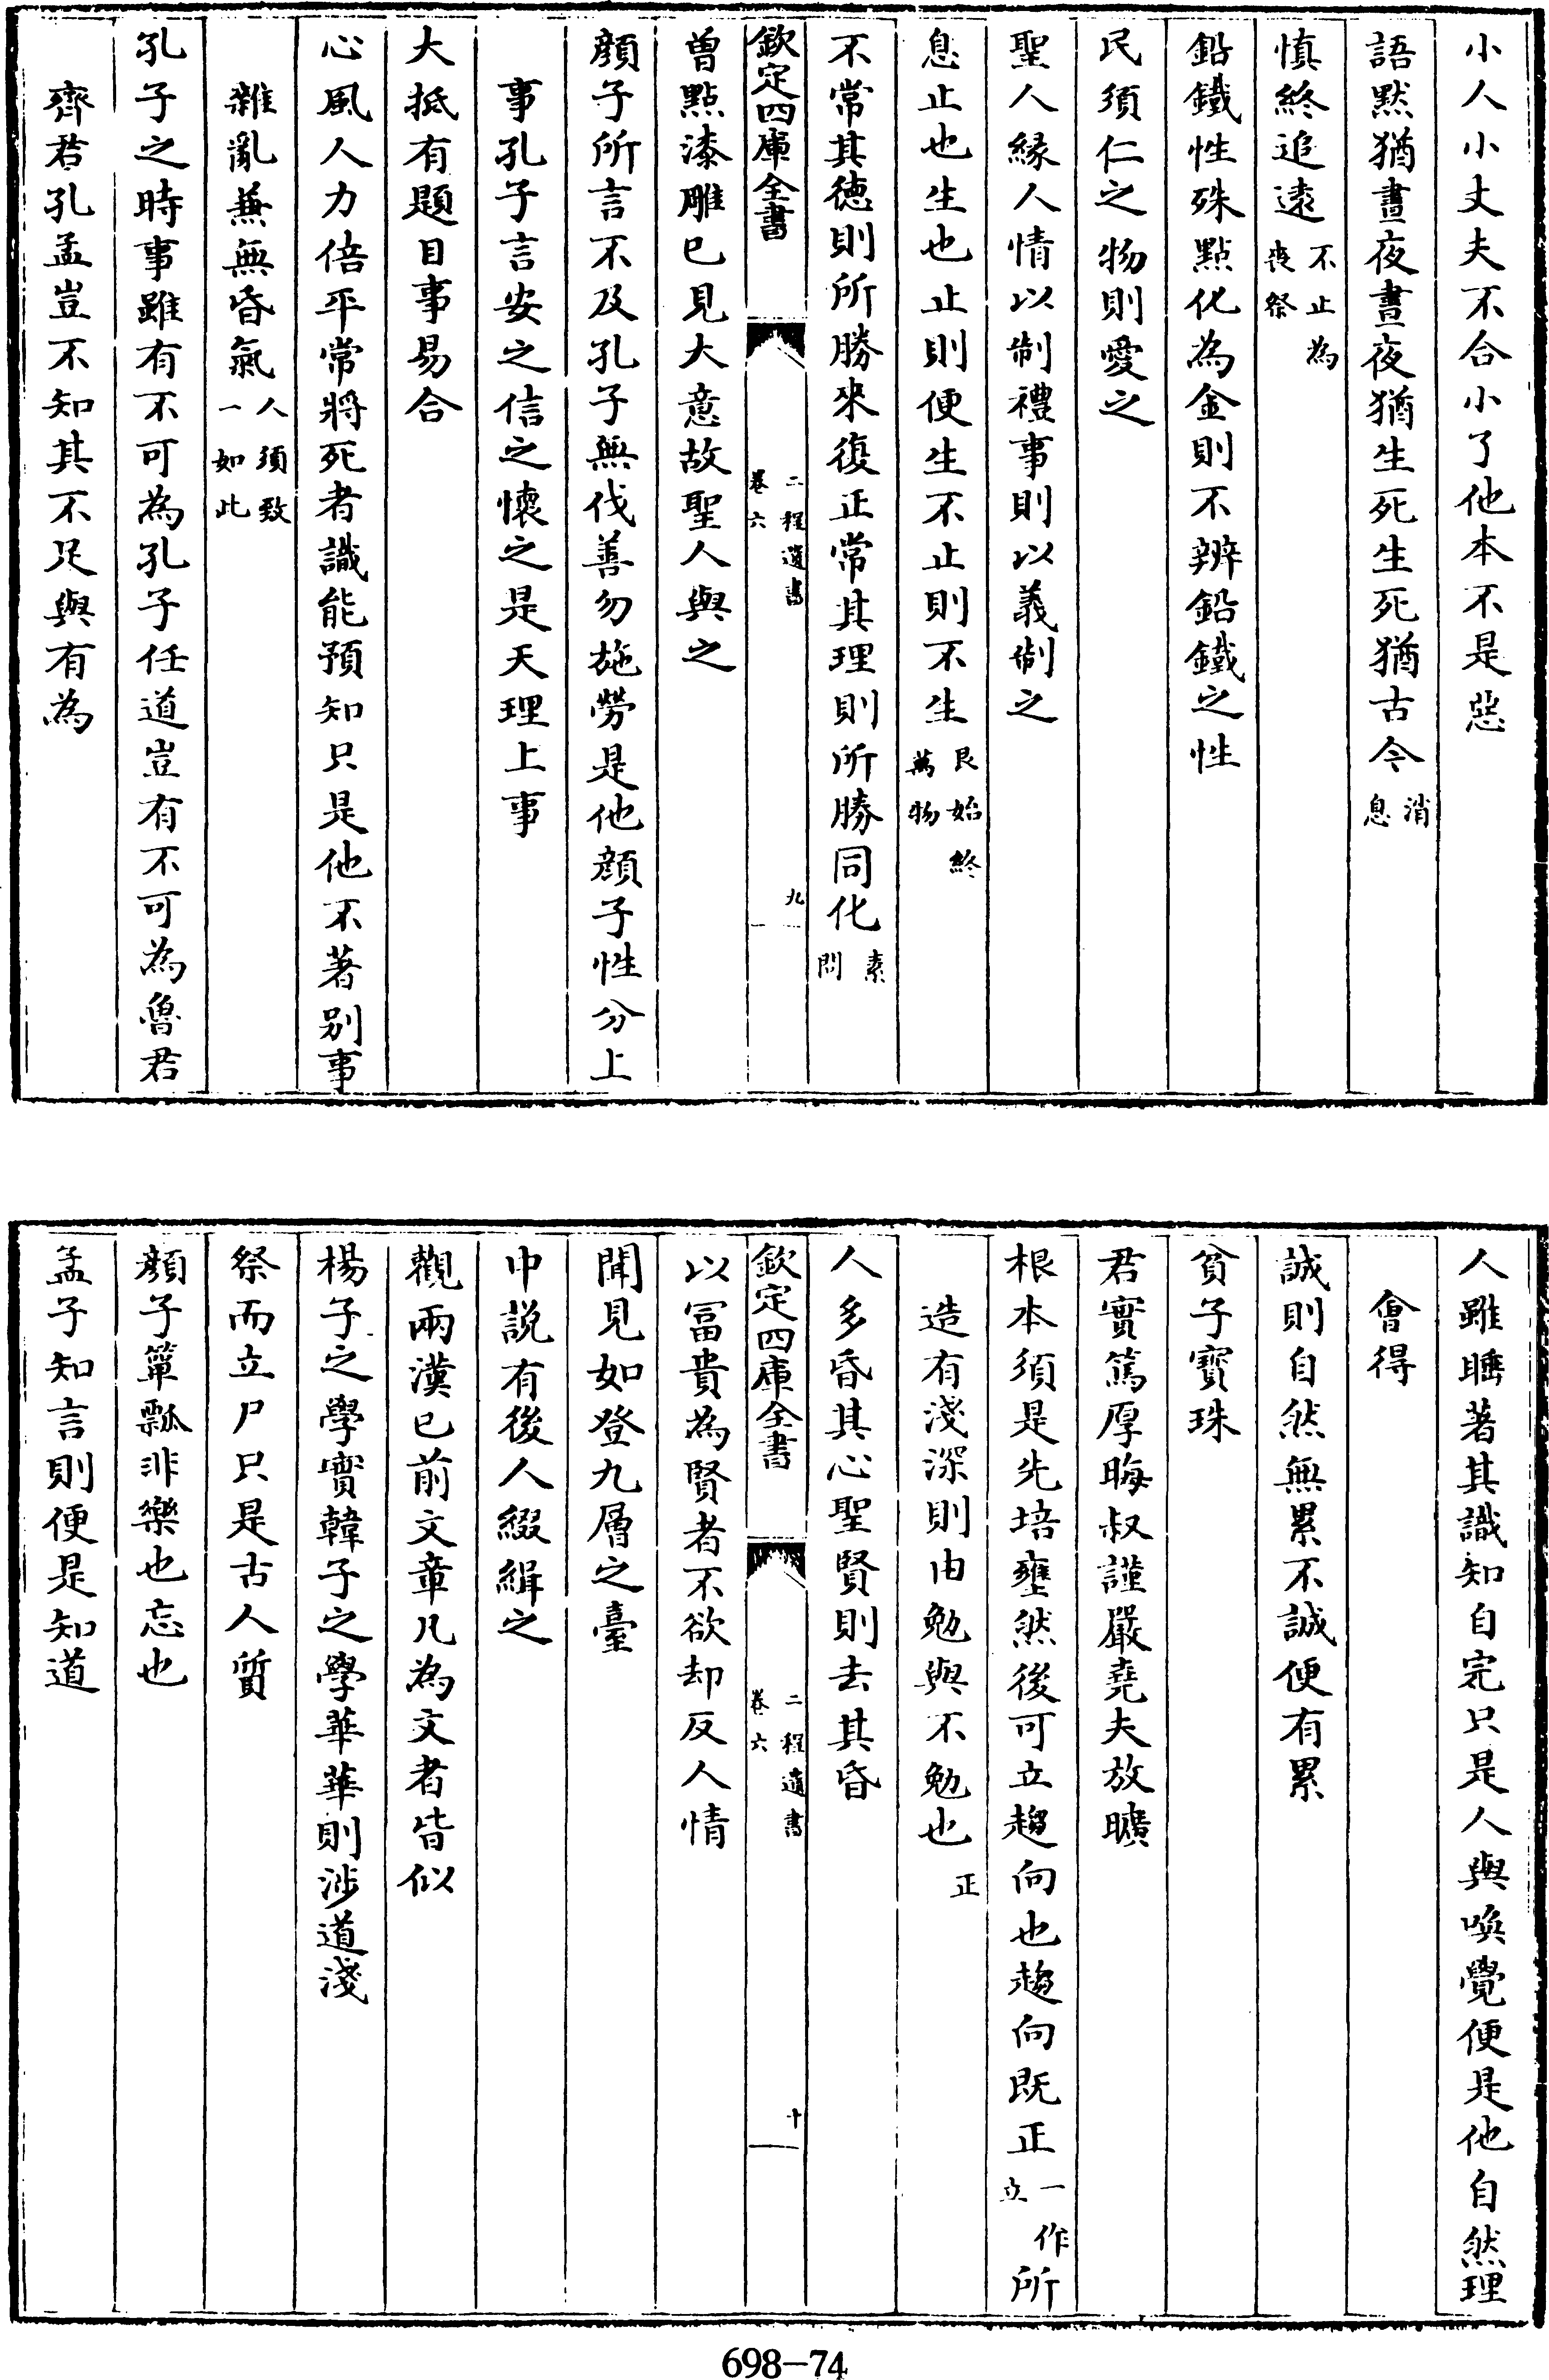 小人小丈夫不合小了他本不是惡
語黙猶晝夜晝夜猶生死生死猶古今消息
慎終追逺不止為喪祭
鉛鐵性殊點化為金則不辨鉛鐵之性
民須仁之物則愛之
聖人緣人情以制禮事則以義制之
息止也生也止則便生不止則不生艮始終萬物
不常其徳則所勝來復正常其理則所勝同化素問
欽定四庫全書
二程遺書
卷六
九
曽點漆雕已見大意故聖人與之
顔子所言不及孔子無伐善勿施勞是他顔子性分上
事孔子言安之信之懷之是天理上事
大抵有題目事易合
心風人力倍平常將死者識能預知只是他不著别事
雜亂兼無昏氣人須致一如此
孔子之時事雖有不可為孔子任道豈有不可為魯君
齊君孔孟豈不知其不足與有為
人雖睡著其識知自完只是人與喚覺便是他自然理
會得
誠則自然無累不誠便有累
貧子寳珠
君實篤厚晦叔謹嚴堯夫放曠
根本須是先培壅然後可立趨向也趨向既正一作立所
造有淺深則由勉與不勉也正
人多昏其心聖賢則去其昏
欽定四庫全書
二程遺書
卷六
十
以冨貴為賢者不欲却反人情
聞見如登九層之臺
中説有後人綴緝之
觀兩漢已前文章凡為文者皆似
楊子之學實韓子之學華華則涉道淺
祭而立尸只是古人質
顔子簞瓢非樂也忘也
孟子知言則便是知道
698-74